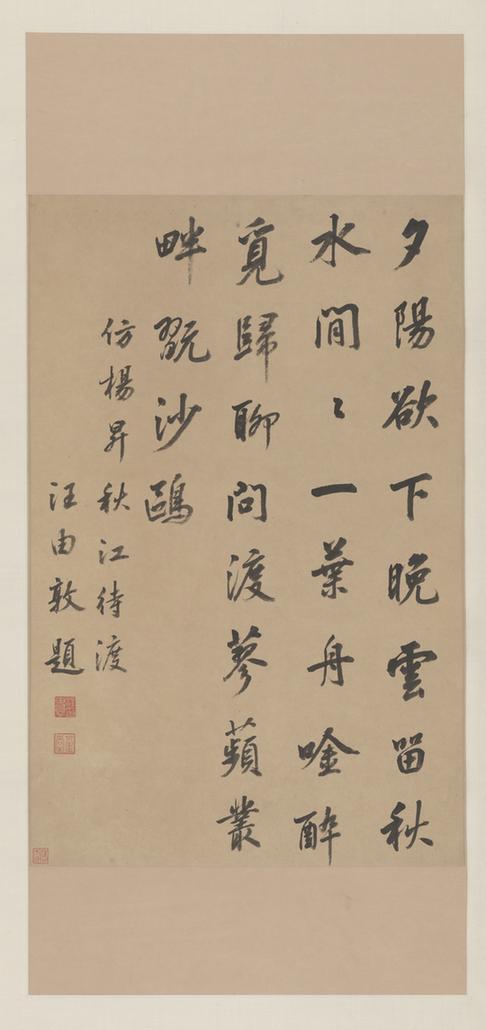 夕陽欲下晚雲留秋
水閒〻一葉舟唫醉
覓歸聊問渡蓼蘋叢
畔翫沙鷗
仿楊昇秋江待渡
汪由敦題